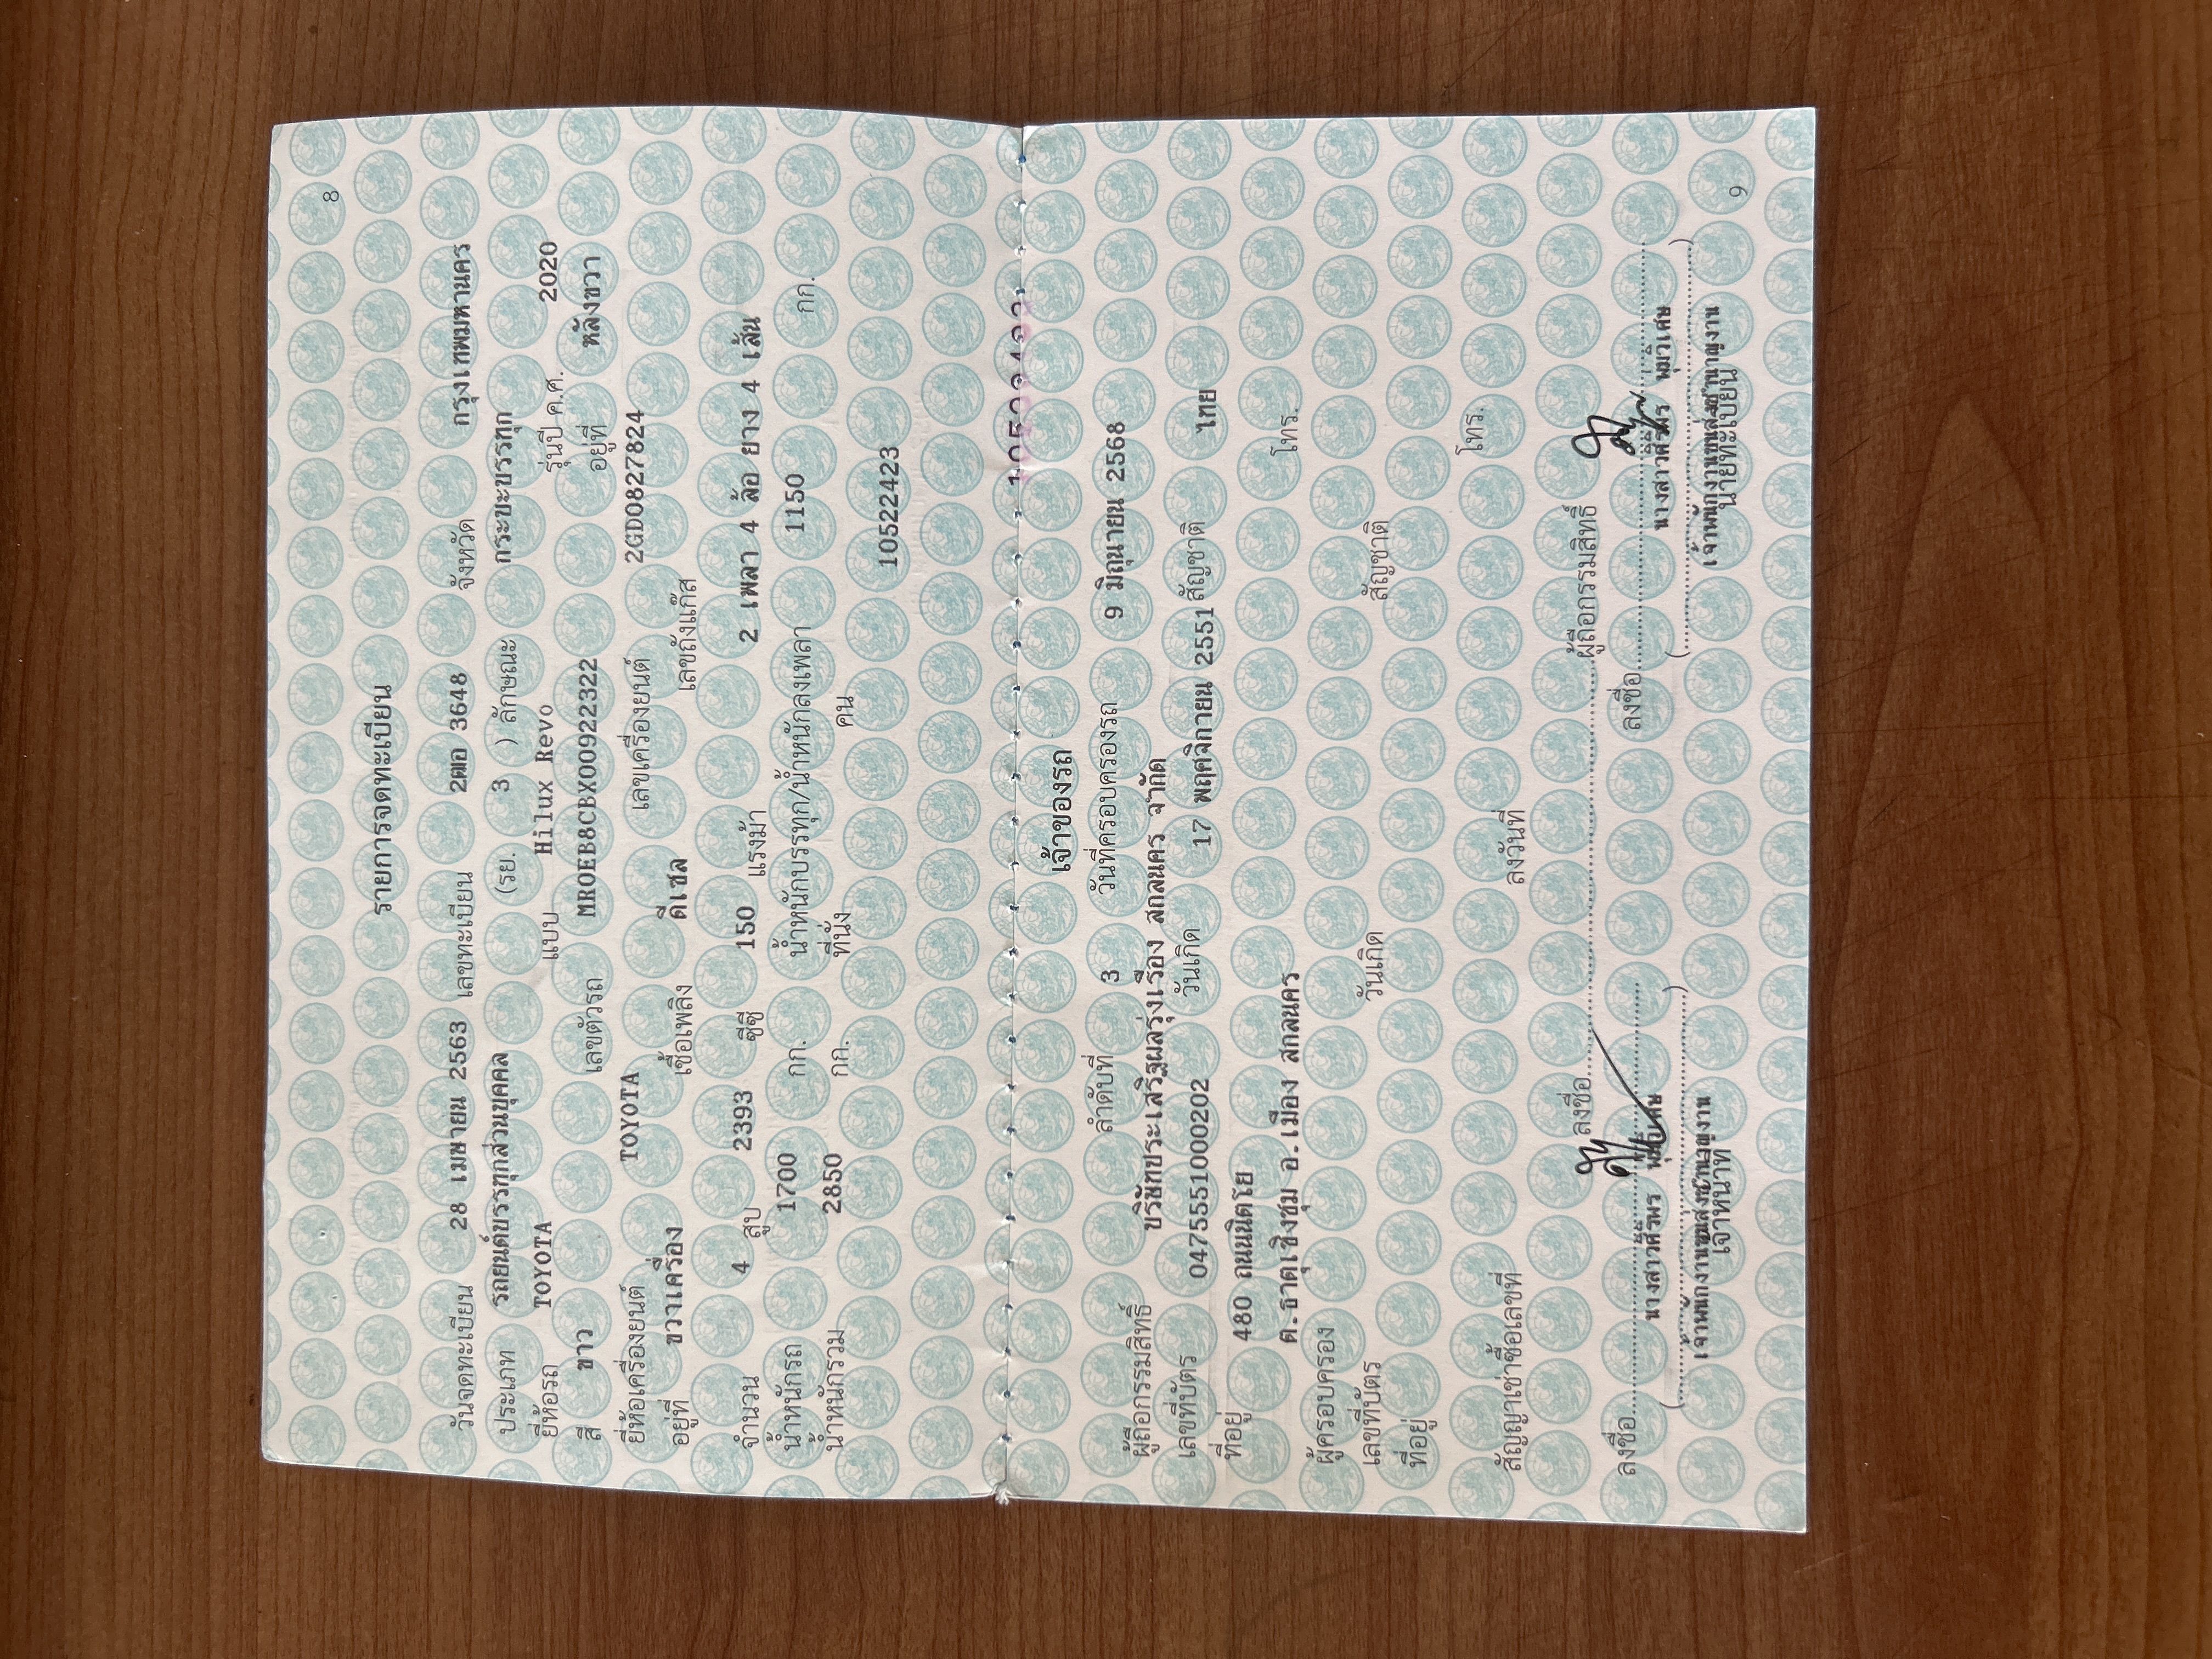 8
รายการจดทะเบียน
วันจดทะเบียน 28 เมษายน 2563 เลขทะเบียน 2ฒอ 3648 จังหวัด กรุงเทพมหานคร
ประเภท รถยนต์บรรทุกส่วนบุคคล (รย. 3 ) ลักษณะ กระบะบรรทุก
ยี่ห้อรถ TOYOTA แบบ Hilux Revo รุ่นปี ค.ศ. 2020
สี ขาว เลขตัวรถ MR0EB8CBX00922322 อยู่ที่ หลังขวา
ยี่ห้อเครื่องยนต์ TOYOTA เลขเครื่องยนต์ 2GD0827824
อยู่ที่ ขวาเครื่อง เชื้อเพลิง ดีเซล เลขถังแก๊ส
จำนวน 4 สูบ 2393 ซีซี 150 แรงม้า 2 เพลา 4 ล้อ ยาง 4 เส้น
น้ำหนักรถ 1700 กก. น้ำหนักบรรทุก/น้ำหนักลงเพลา 1150 กก.
น้ำหนักรวม 2850 กก. ที่นั่ง คน
10522423
เจ้าของรถ
ลำดับที่ 3 วันที่ครอบครองรถ 9 มิถุนายน 2568
ผู้ถือกรรมสิทธิ์ บริษัทประเสริฐผลรุ่งเรือง สกลนคร จำกัด
เลขที่บัตร 0475551000202 วันเกิด 17 พฤศจิกายน 2551 สัญชาติ ไทย
ที่อยู่ 480 ถนนนิตโย
ต.ธาตุเชิงชุม อ.เมือง สกลนคร โทร.
ผู้ครอบครอง
เลขที่บัตร วันเกิด สัญชาติ
ที่อยู่
โทร.
สัญญาเช่าซื้อเลขที่ ลงวันที่
ลงชื่อ ผู้ถือกรรมสิทธิ์
ลงชื่อ ลงชื่อ
นางสาวศิริพร นางสาวศิริพร
เจ้าพนักงานขนส่งชำนาญงาน เจ้าพนักงานขนส่งชำนาญงาน
เจ้าหน้าที่ นายทะเบียน
9